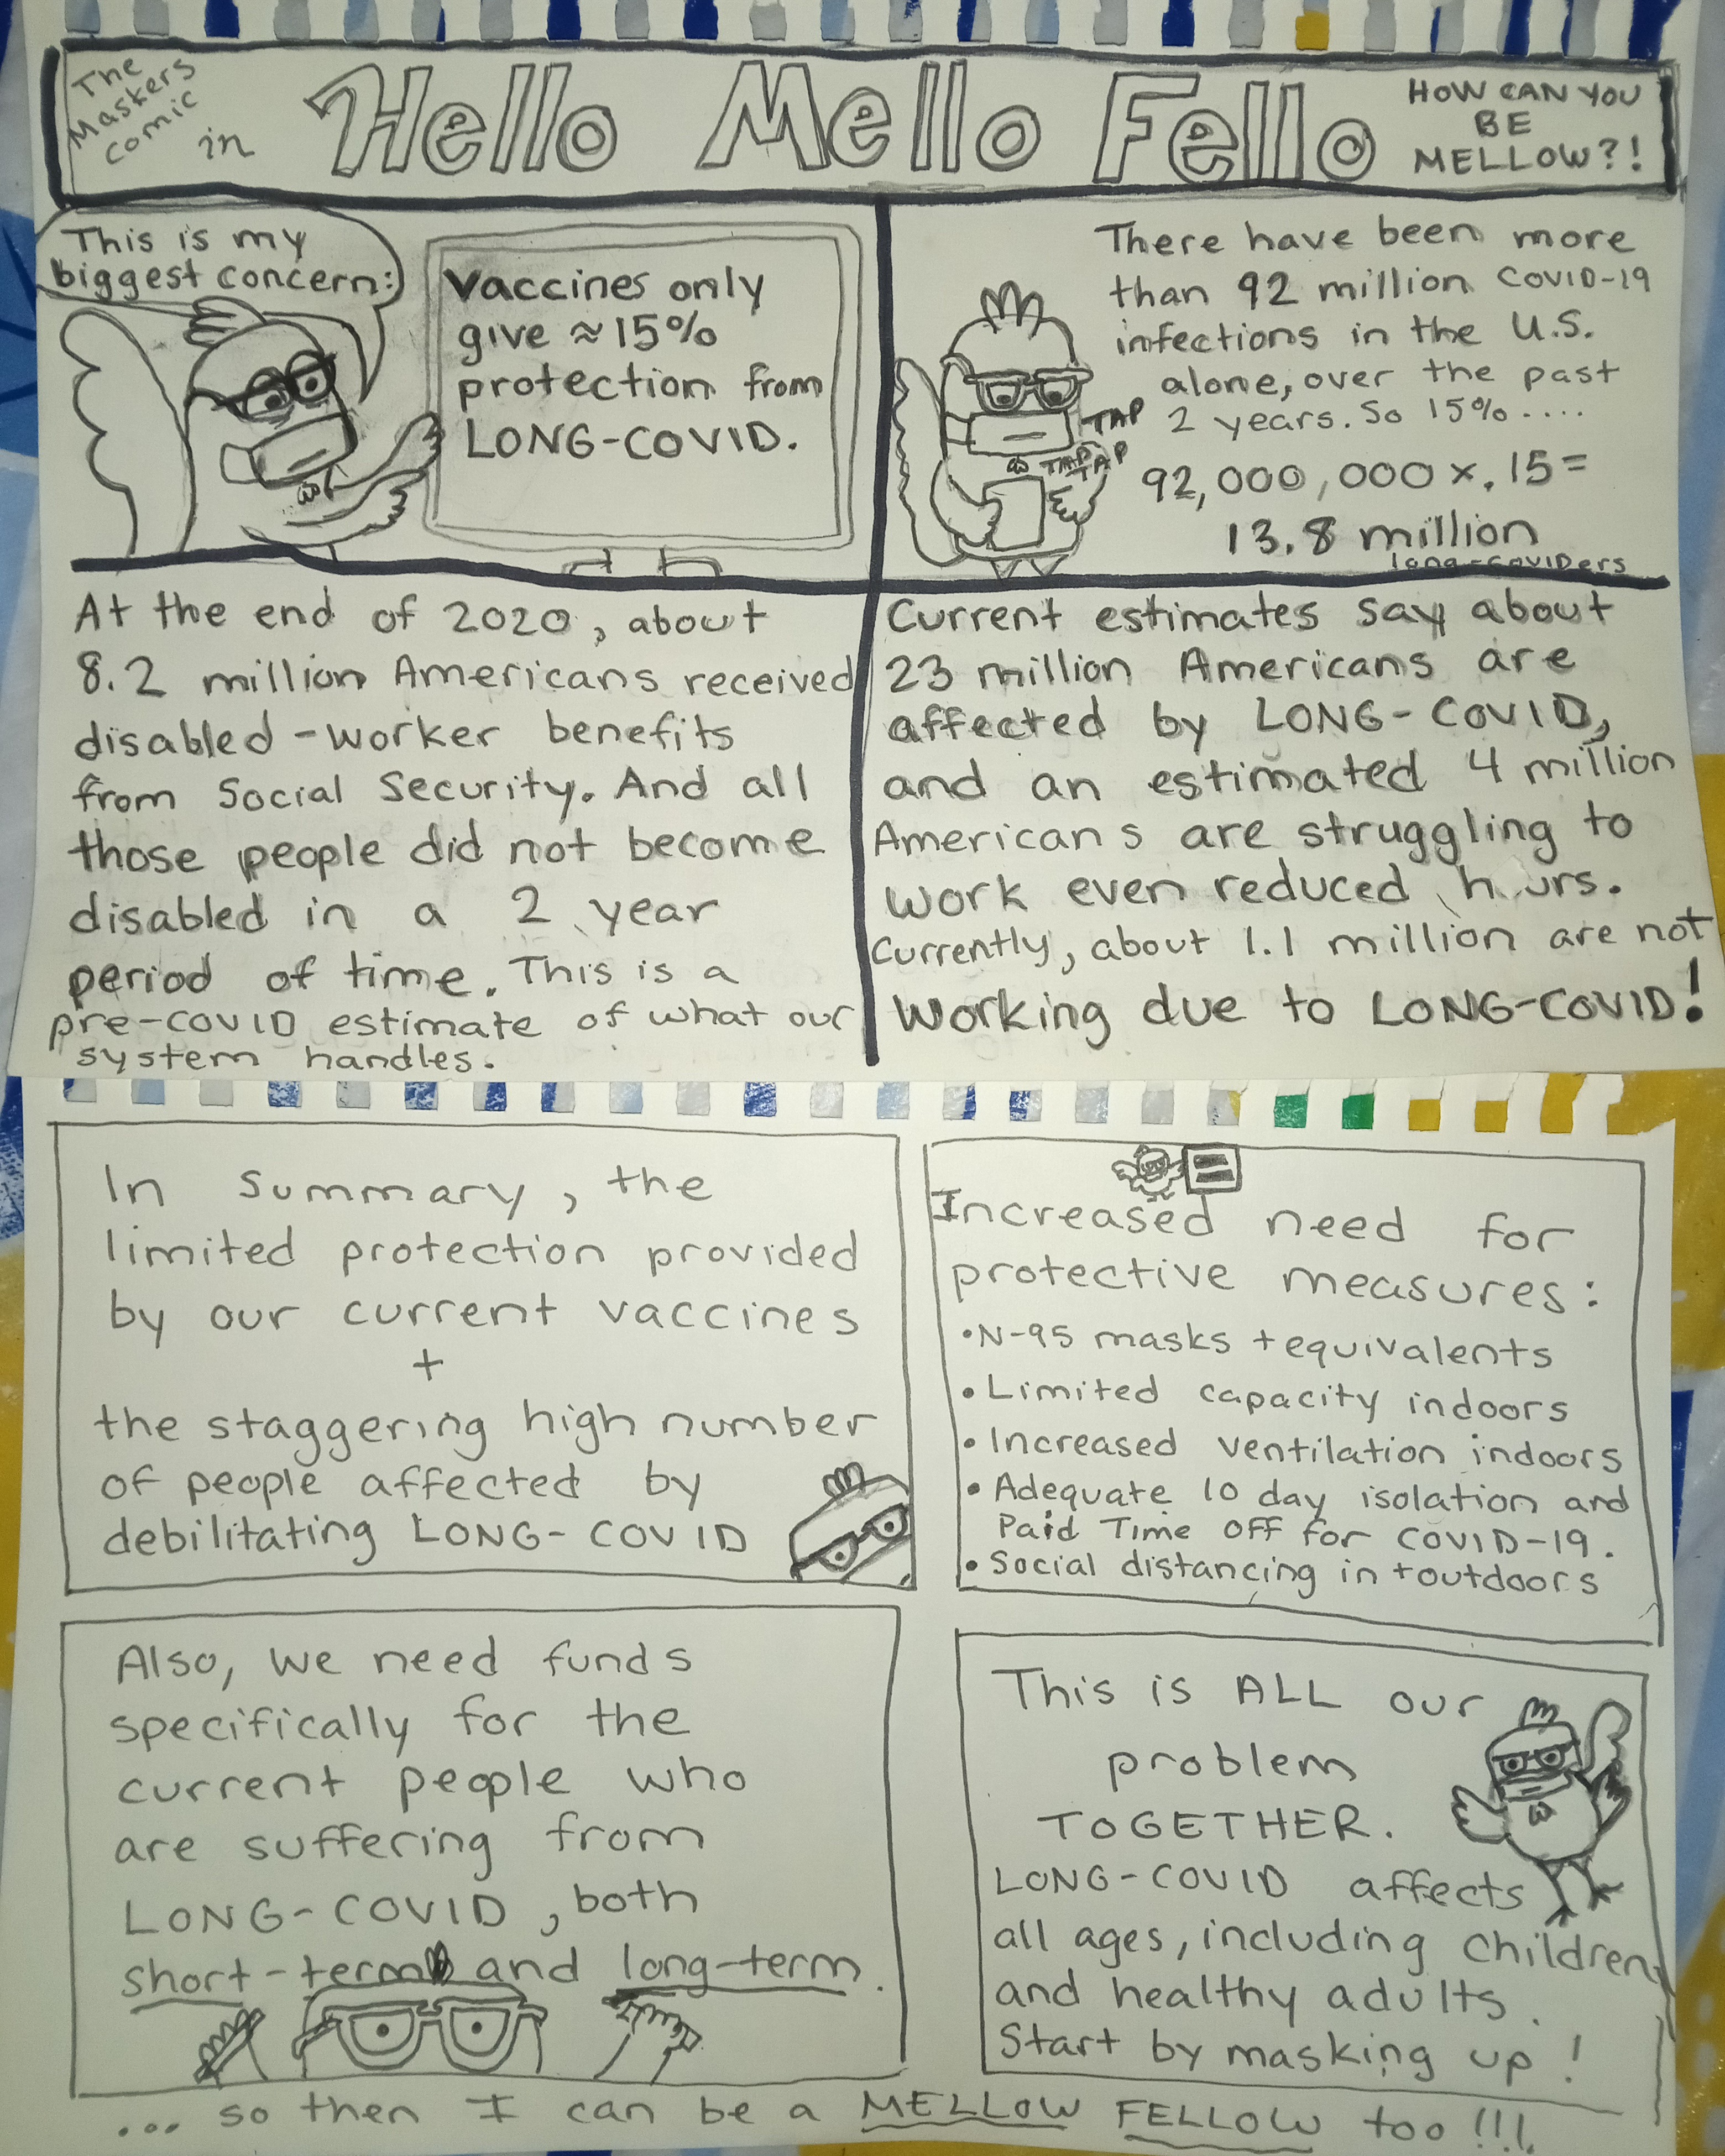 The
Maskers
comic
in
Hello Mello Fello
HOW CAN YOU
BE
MELLOW?!
This is my
biggest concern:
Vaccines only
give ≈15%
protection from
LONG-COVID.
There have been more
than 92 million COVID-19
infections in the U.S.
alone, over the past
2 years. So 15%....
TAP
TAP
TAP
92,000,000 x .15=
13.8 million
long-coviders
At the end of 2020, about
8.2 million Americans received
disabled-worker benefits
from Social Security. And all
those people did not become
disabled in a 2 year
period of time. This is a
pre-COVID estimate of what our
system handles.
Current estimates say about
23 million Americans are
affected by LONG-COVID,
and an estimated 4 million
Americans are struggling to
work even reduced hours.
Currently, about 1.1 million are not
working due to LONG-COVID!
In summary, the
limited protection provided
by our current vaccines
+
the staggering high number
of people affected by
debilitating LONG-COVID
=
Increased need for
protective measures:
•N-95 masks + equivalents
•Limited capacity indoors
•Increased ventilation indoors
•Adequate 10 day isolation and
Paid Time OFF for COVID-19.
•Social distancing in + outdoors
Also, we need funds
specifically for the
current people who
are suffering from
LONG-COVID, both
short-term and long-term.
This is ALL our
problem
TOGETHER.
LONG-COVID affects
all ages, including children,
and healthy adults.
Start by masking up!
... so then I can be a MELLOW FELLOW too!!!